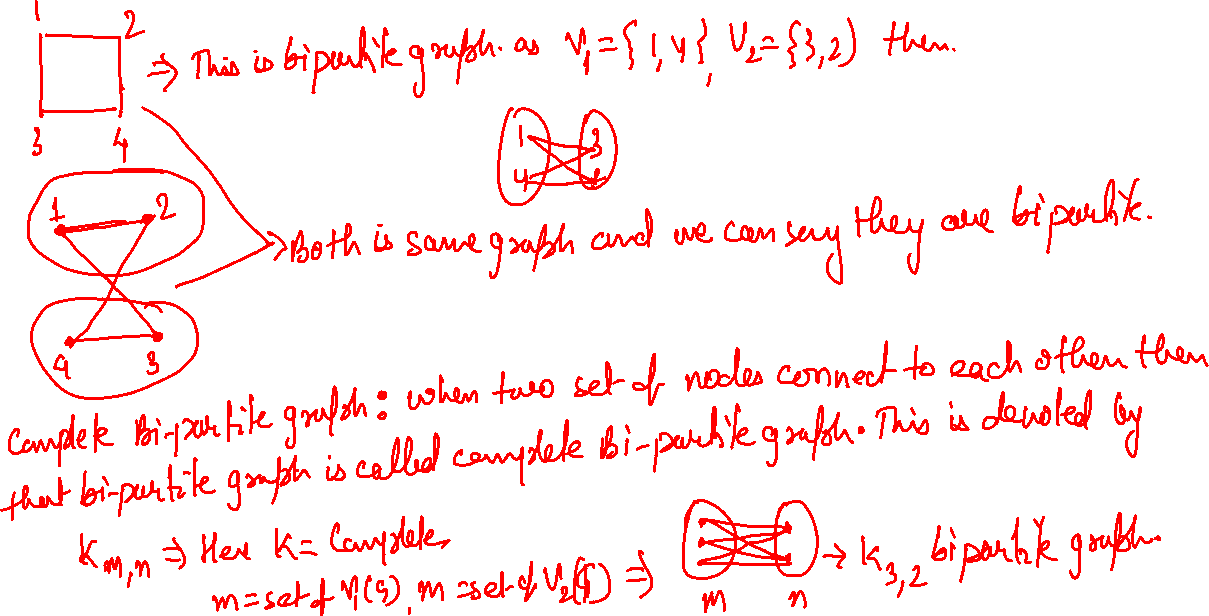 1 2
⇒ This is bipartite graph. as V₁={1,4}, V₂={3,2) then.
3 4
1 3
4
1 2
→ Both is same graph and we can say they are bipartite.
4 3
Complete Bi-partite graph: when two set of nodes connect to each other then
that bi-partite graph is called complete Bi-partite graph. This is denoted by
K m,n ⇒ Here K = Complete,
m = set of V₁(G), m = set of V₂(G) ⇒ → K 3,2 bipartite graph.
m n